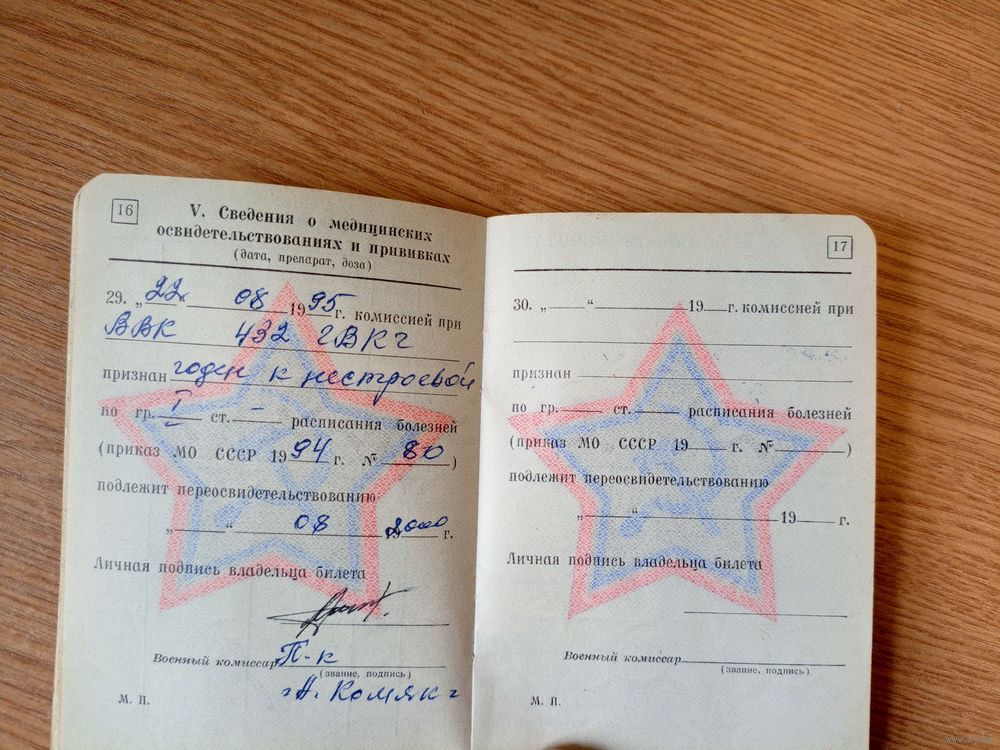 16
V. Сведения о медицинских
освидетельствованиях и прививках
(дата, препарат, доза)
29. „22“ 08 1995 г. комиссией при
ВВК 432 ГВКГ
признан годен к нестроевой
по гр. I ст. — расписания болезней
(приказ МО СССР 1994 г. № 80)
подлежит переосвидетельствованию
„ “ 08 2000 г.
Личная подпись владельца билета
Военный комиссар П-к
(звание, подпись)
М. П.
17
30. „ “ 19 г. комиссией при
признан
по гр. ст. расписания болезней
(приказ МО СССР 19 г. № )
подлежит переосвидетельствованию
„ “ 19 г.
Личная подпись владельца билета
Военный комиссар
(звание, подпись)
М. П.